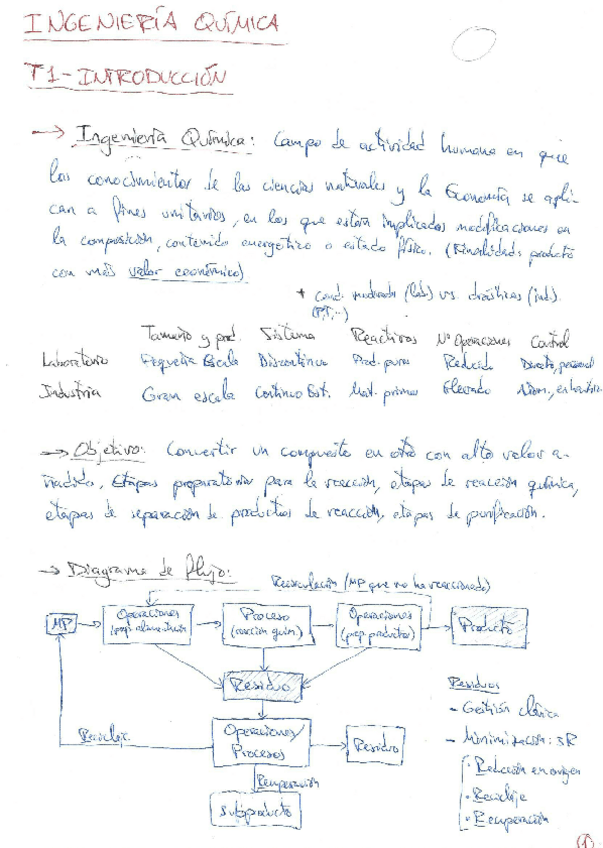 INGENIERÍA QUÍMICA
T1-INTRODUCCIÓN
→ Ingeniería Química: Campo de actividad humana en que
los conocimientos de las ciencias naturales y la Economía se apli-
can a fines unitarios, en los que están implicados modificaciones en
la composición, contenido energético o estado físico. (Finalidad: producto
con más valor económico)
+ cond. moderada (lab) vs. drásticas (ind.)
(P,T,...)
Tamaño y prod. Sistema Reactivos Nº Operaciones Control
Laboratorio Pequeña Escala Discontinuo Prod. puros Reducido Directo, personal
Industria Gran escala Continuo Est. Mat. primas Elevado
→ Objetivo: Convertir un compuesto en otro con alto valor a-
ñadido, Etapas preparatorias para la reacción, etapas de reacción química,
etapas de separación de productos de reacción, etapas de purificación.
→ Diagrama de flujo:
Recirculación (MP que no ha reaccionado)
MP
Operaciones
(prep. alimentación)
Proceso
(reacción quím.)
Operaciones
(prep. productos)
Producto
Residuo
Residuos
- Gestión clásica
- Minimización: 3R
· Reducción en origen
· Reciclaje
· Recuperación
Reciclaje
Operaciones/
Procesos
Residuo
Recuperación
Subproducto
1